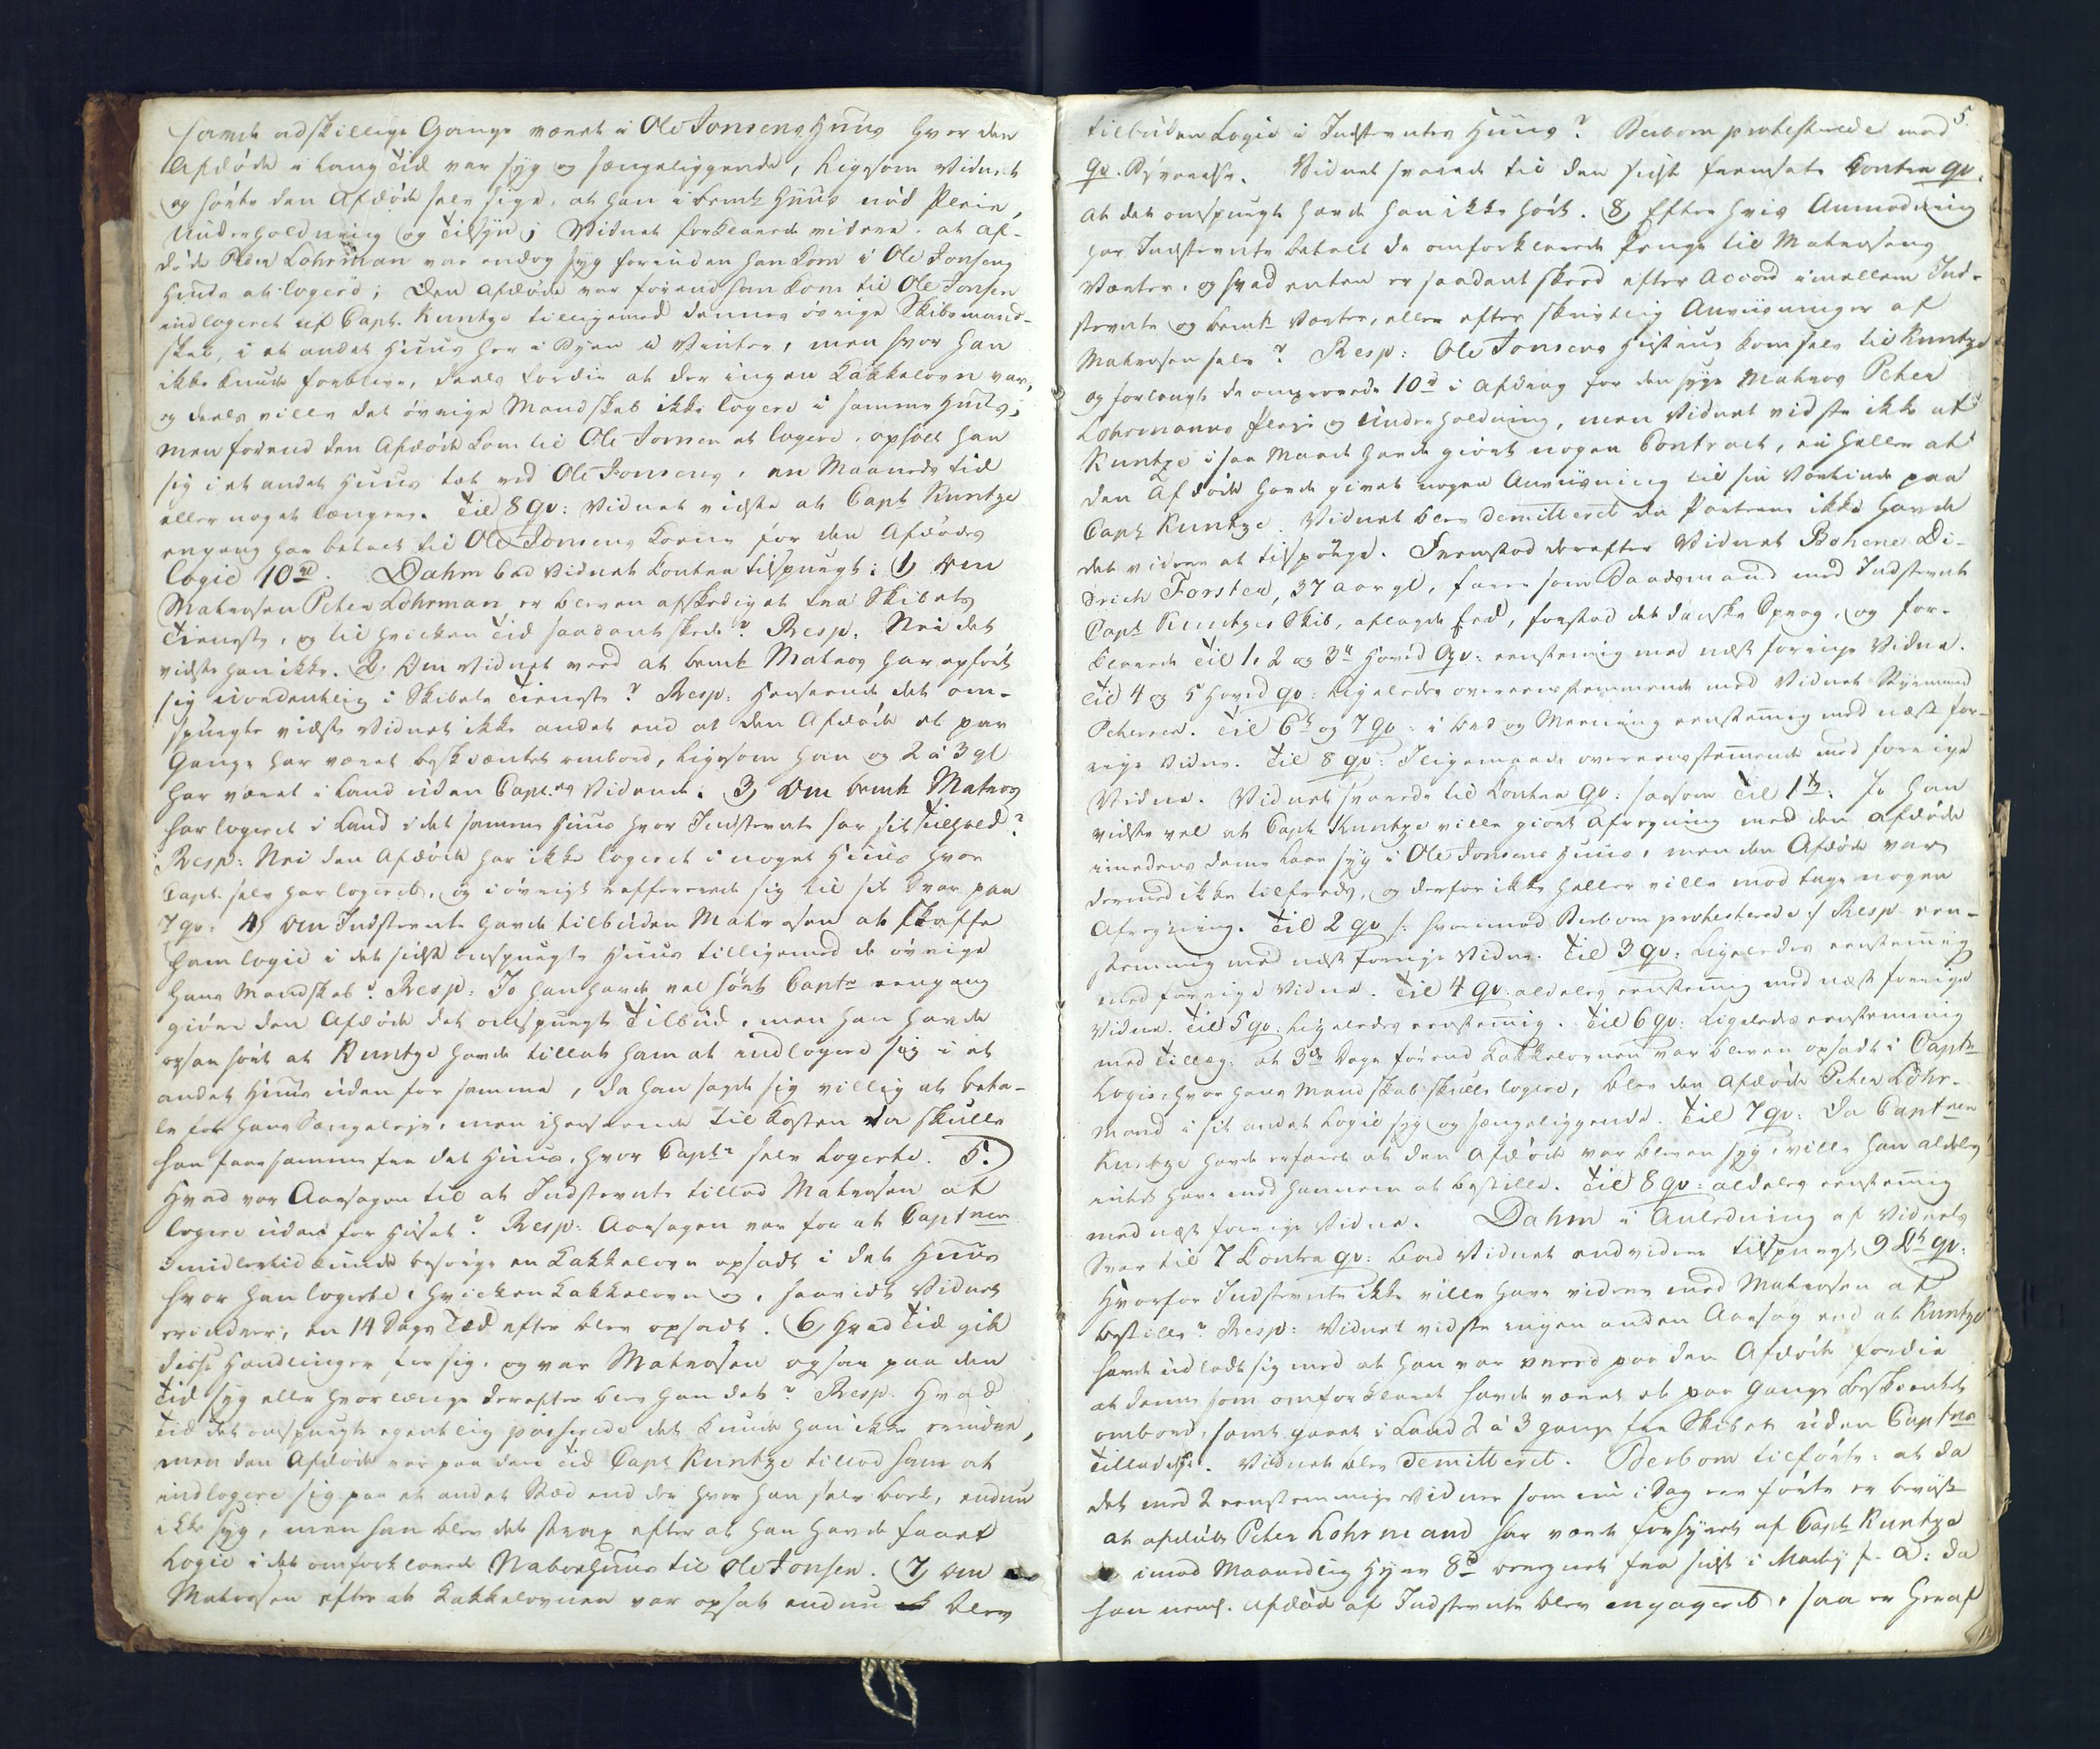 havde adskillige Gange været i Ole Jonsens Huus hvor den
Afdøde i lang Tid var syg og sængeliggende, ligesom Vidnet
og hørte den Afdøde selv sige, at han i bemte Huus nød Pleie,
Underholdning og Tilsyn; Vidnet forklarede videre, at af-
døde Peter Lohrman var endog syg forinden han kom i Ole Jonsens
Huus at logere; Den afdøde var førend han kom til Ole Jonsen
indlogeret af Capt. Kuntze tilligemed dennes øvrige Skibsmand-
skab, i et andet Huus her i Byen i Vinter, men hvor han
ikke kunde forblive, deels fordie at der ingen Kakkelovn var,
og deels ville det øvrige Mandskab ikke logere i samme Huus;
men førend den Afdøde kom til Ole Jonsen at logere, opholt han
sig i et andet Huus tæt ved Ole Jonsens, en Maaneds Tid
eller noget længere. Til 8 qv: Vidnet vidste at Capt Kuntze
engang har betalt til Ole Jonsens Kone for den Afdødes
Logie 10 rd. Dahm bad Vidnet Kontra tilspurgt: 1) Om
Matrosen Peter Lohrman er bleven afskediget fra Skibets
Tieneste, og til hvilken Tid saadant skede? Resp: Nei det
vidste han ikke. 2. Om Vidnet veed at bemte Matros har opført
sig uordentlig i Skibets Tieneste? Resp: Henseende det om-
spurgte vidste Vidnet ikke andet end at den Afdøde et par
Gange har været beskiænket ombord, ligesom han og 2 à 3 gl
har været i Land uden Capt.ns Vidende. 3) Om bemte Matros
har logeret i Land i det samme Huus hvor Indstevnte har sit Tilhold?
Resp: Nei den Afdøde har ikke logeret i noget Huus hvor
Capt. selv har logeret, og i øvrigt refererede sig til sit Svar paa
7 qv: 4) Om Indstevnte havde tilbuden Matrosen at skaffe
ham logie i det sidst omspurgte Huus tilligemed de øvrige
hans Mandskab? Resp: Jo han havde vel hørt Captn eengang
giøre den Afdøde det omspurgte Tilbud, men han havde
ogsaa hørt at Kuntze havde tilladt ham at indlogere sig i et
andet Huus uden for samme, da han sagde sig villig at beta-
le for hans Sængeleje, men ihenseende til Kosten da skulle
han faae samme fra det Huus, hvor Captn selv logerte. 5.)
Hvad var Aarsagen til at Indstevnte tillod Matrosen at
logere uden for Huset? Resp: Aarsagen var for at Captnen
imidlertid kunde besørge en Kakkelovn opsadt i det Huus
hvor han logerte, hvilken Kakkelovn og, saavidt Vidnet
erindrer, en 14 Dags Tid efter blev opsadt. 6) Hvad Tid gik
disse Handlinger for sig, og var Matrosen ogsaa paa den
Tid syg eller hvorlænge derefter blev han det? Resp. Hvad
Tid det omspurgte egentlig passerede det kunde han ikke erindre,
men den Afdøde var paa den Tid Capt Kuntze tillod ham at
indlogere sig paa et andet Stæd end der hvor han selv boede, endnu
ikke syg, men han blev det strax efter at han havde faaet
Logie i det omforklarede Naboehuus til Ole Jonsen. 7) Om
Matrosen efter at Kakkelovnen var opsat endnu blev
5.
tilbuden Logie i Indstevntes Huus? Berbom protesterede mod
qv. Besvarelse. Vidnet svarede til den sidst fremsatte Contra qv.
at det omspurgte havde han ikke hørt. 8) Efter hvis Anmodning
har Indstevnte betalt de omforklarede Penge til Matrosens
Værter, og hvad enten er saadant skeed efter Accord imellem Ind-
stevnte og bemte Værter, eller efter skrivtlig Anviisninger af
Matrosen selv? Resp: Ole Jonsens Hustrue kom selv til Kuntze
og forlangte de omprovede 10 d i Afdrag for den syge Matros Peter
Lohrmanns Pleie og Underholdning, men Vidnet vidste ikke at
Kuntze i saa Maade havde giort nogen Contract, ei heller at
den Afdøde havde givet nogen Anviisning til sin Værtinde paa
Capt Kuntze. Vidnet blev demitteret da Parterne ikke havde
det videre at tilspørge. Fremstod derefter Vidnet Bohene Di-
drich Forsten, 37 aar gl, farer som Baadsmand med Indstevnte
Capt Kuntzes Skib, aflagde Eed, forstod det danske Sprog, og for-
klarede Til 1, 2 og 3de Hoved Qv: eenstemmig med næst forrige Vidne.
Til 4 og 5 Hoved qv: ligeledes overeensstemmende med Vidnet Styrmand
Petersen. Til 6te og 7 qv: i Ord og Meening eenstemig med næst for-
rige Vidne. Til 8 qv: Iligemaade overeensstemende med forrige
Vidne. Vidnet svarede til Kontra qv: saasom Til 1te Jo han
vidste vel at Capt Kuntze ville giort Afregning med den afdøde
imedens denne laae syg i Ole Jonsens Huus, men den Afdøde var
dermed ikke tilfreds, og derfor ikke heller ville mod tage nogen
Afregning. Til 2 qv /: hvorimod Berbom protesterede :/ Resp een-
stemmig med næst forrige Vidne. Til 3 qv: ligeledes eenstemmig
med forrige Vidne. Til 4 qv: aldeles eenstemig med næst forrige
Vidne. Til 5 qv: ligeledes eenstemmig. Til 6 qv: Ligeledes eenstemmig
med Tillæg: at 3de Dage førend Kakkelovnen var bleven opsadt i Captn
Logie, hvor hans Mandskab skulle logere, blev den Afdøde Peter Lohr-
mand i sit andet Logie syg og sængeliggende. Til 7 qv: Da Captnen
Kuntze havde erfaret at den Afdøde var bleven syg, ville han aldeles
intet have med hannem at bestille. Til 8 qv: aldeles eenstemig
med næst forrige Vidne. Dahm i Anledning af Vidnets
Svar til 7 Kontra qv: bad Vidnet endvidere tilspurgt 9de qv:
Hvorfor Indstevnte ikke ville have videre med Matrosen at
bestille? Resp: Vidnet vidste ingen anden Aarsag end at Kuntze
havde udladt sig med at han var vreed paa den Afdøde fordie
at denne som omforklaret havde været et par Gange beskiænket
ombord, samt gaaet i Land 2 à 3 gange fra Skibet uden Captns
Tilladelse. Vidnet blev Demitteret. Berbom tilførte: at da
det med 2 eenstemmige Vidner som nu i Dag ere førte er beviist
at afdøde Peter Lohrmand har været forhyret af Capt Kuntze
imod Maanedlig Hyre 8 d beregnet fra sidst i Marty f. A: da
han neml. afdød af Indstevnte blev engageret, saa er heraf